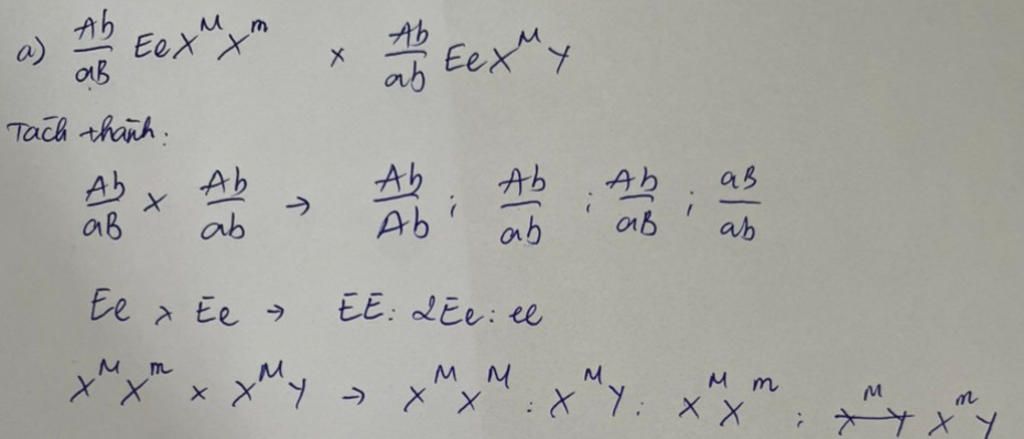 a) Ab/aB EeX^M X^m × Ab/ab EeX^M Y
Tách thành:
Ab/aB × Ab/ab → Ab/Ab ; Ab/ab ; Ab/aB ; aB/ab
Ee × Ee → EE : 2Ee : ee
X^M X^m × X^M Y → X^M X^M : X^M Y : X^M X^m : X^m Y